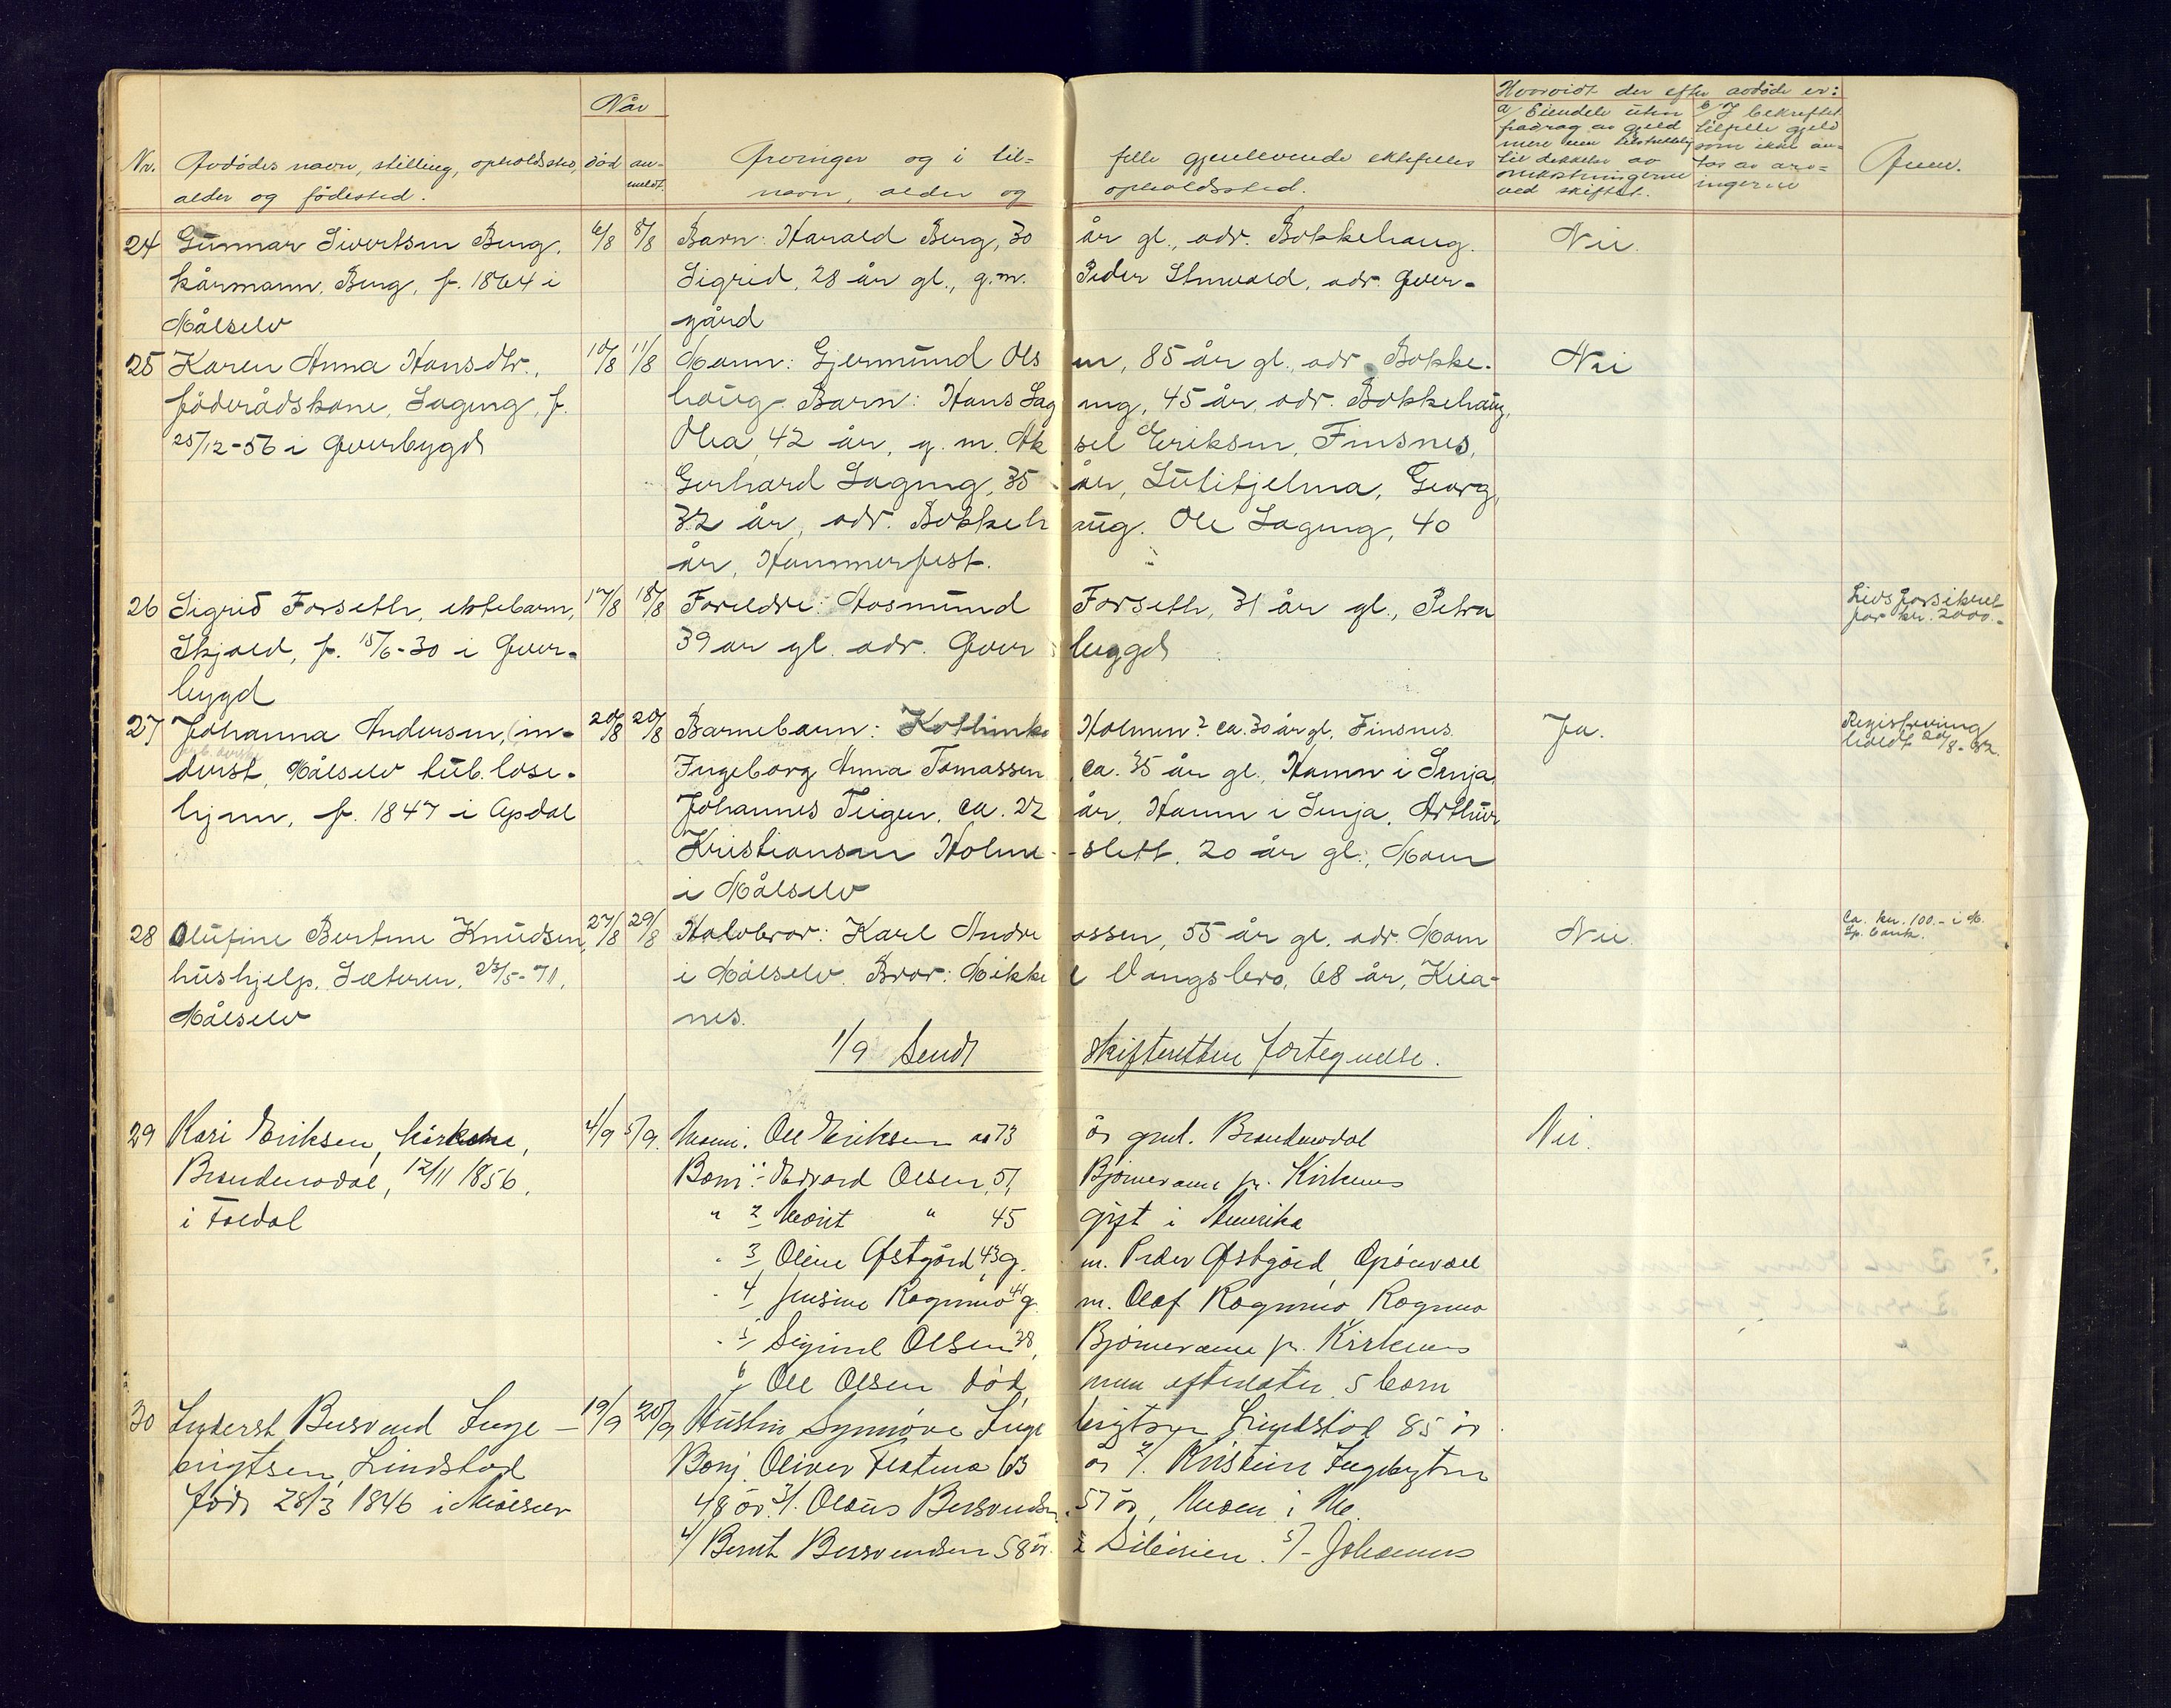 Når
Hvorvidt der efter avdøde er:
Nr. Avdødes navn, stilling, opholdssted, død an- Arvinger og i til- felle gjenlevende ektefelles a/ Eiendele uten b/ I bekreftet Anm.
alder og fødested. meldt. navn, alder og opholdssted. fradrag av gjeld tilfelle gjeld
mere enn tilstrekkelig som ikke an-
til dekkelse av tas av arv-
omkostningerne ingerne
ved skiftet.
24 Gunnar Sivertsen Berg, 6/8 8/8 Barn: Harald Berg, 30 år gl., adr. Bakkehaug. Nei.
kårmann, Berg, f. 1864 i Sigrid, 28 år gl., g.m. Peder Stenvold, adr. Øver-
Målselv gård
25 Karen Anna Hansdtr., 10/8 11/8 Mann: Gjermund Ols en, 85 år gl., adr. Bakke- Nei
føderådskone, Lageng, f. haug. Barn: Hans Lag eng, 45 år, adr. Bakkehaug,
25/12-56 i Øverbygd Olea, 42 år, g. m. Ak sel Eriksen, Finsnes,
Gerhard Lageng, 35 år, Sulitjelma, Georg,
32 år, adr. Bakkeh aug. Ole Lageng, 40
år, Hammerfest.
26 Sigrid Forseth, ektebarn, 17/8 18/8 Foreldre: Aasmund Forseth, 31 år gl., Petra Livsforsikret
Skjold, f. 15/6-30 i Øver- 39 år gl. adr. Øver bygd for kr. 2000.-
bygd
27 Johanna Andersen, (in- 20/8 20/8 Barnebarn: Holmen? ca. 30 år gl. Finsnes. Ja. Registrering
derst, Målselv tub. lose- Ingeborg Anna Tomassen, ca. 35 år gl., Hamn i Senja, holdt 20/8-32.
hjem, f. 1847 i Opdal Johannes Teigen, ca. 22 år, Hamn i Senja, Arthur
Kristiansen Holme- -slett, 20 år gl., Moen
i Målselv
28 Olufine Bertine Knudsen, 27/8 29/8 Halvbror: Karl Andre assen, 55 år gl. adr. Moen Nei. Ca. kr. 100.- i M.
hushjelp, Sæteren, 23/5-71, i Målselv. Bror: Mikke l Vangsbro, 68 år, Kila- Sp. bank.
Målselv nes.
1/9 Sendt skifteretten fortegnelse.
29 Kari Eriksen, kårkone, 4/9 5/9. Mann: Ole Eriksen 73 år gml. Brandmodal Nei.
Brandmodal, 12/11 1856, Barn: Edvard Olsen, 51, Bjørnevann pr. Kirkenes
i Foldal " 2 Marit " 45 gift i Amerika
3 Oline Østgård 43 g. m. Peder Østgård,
4 Jensine Rognmo 41 g. m. Olaf Rognmo Rognmo
5 Sigurd Olsen 38, Bjørnevann pr. Kirkenes
6 Ole Olsen død, men efterlater 5 barn
30 Inderst Bersvend Inge- 19/9 20/9 Hustru Synnøve Inge brigtsen Lindstad 85 år
brigtsen, Lindstad Barn Oliver 63 år 2/. Kristine Ingebrigtsen
født 28/3 1846 i Målselv 48 år. 3/. Olaus Bersvendsen. 57 år, Moen i M.
4/ Bernt Bersvendsen 58 år. i Sibirien. 5/- Johannes